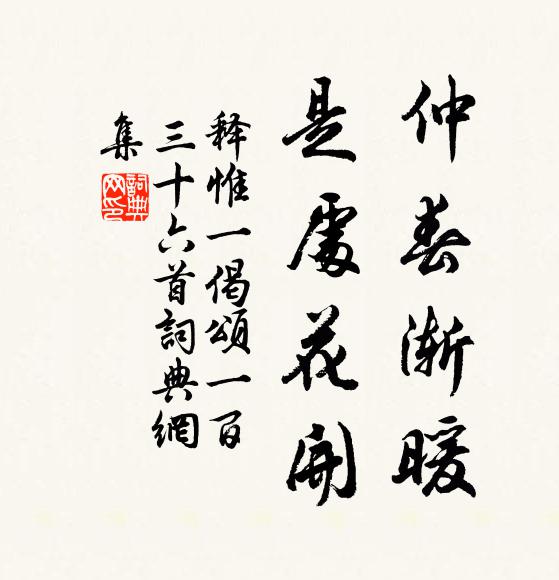 仲春渐暖
是處花開
释惟一偈頌一百
三十六首詞典網
集
詞典
网印